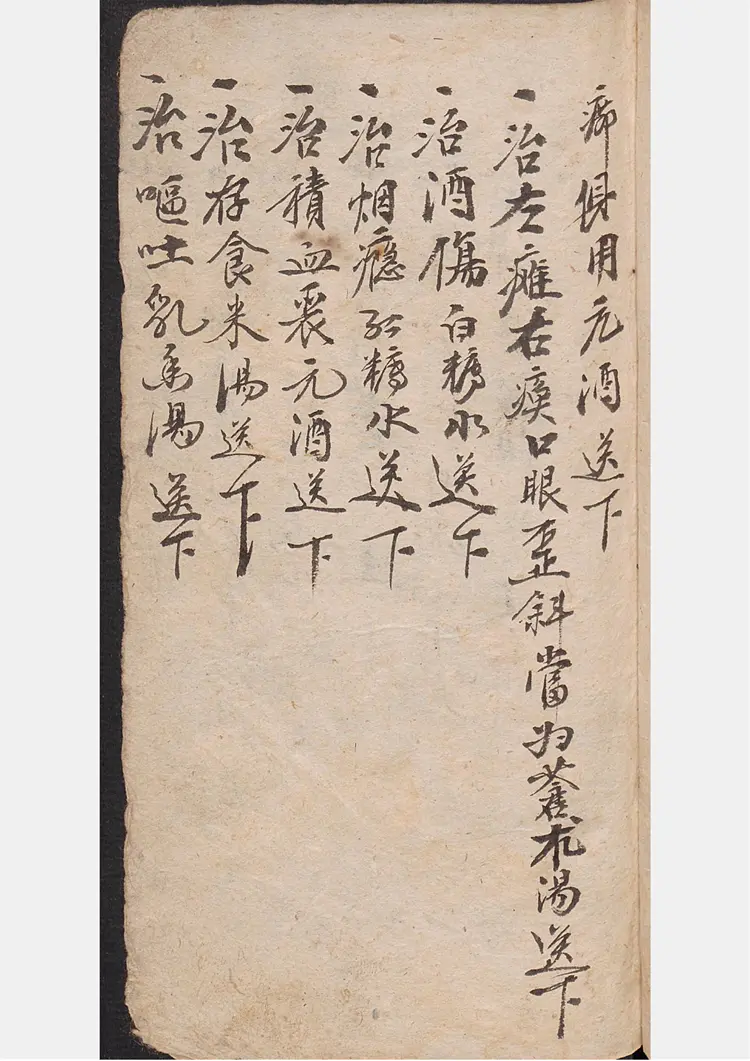 疿俱用元酒送下
一治左癱右瘓口眼歪斜當为蒼朮湯送下
一治酒傷白糖水送下
一治烟癮紅糖水送下
一治積血裹元酒送下
一治存食米湯送下
一治嘔吐乳香湯送下